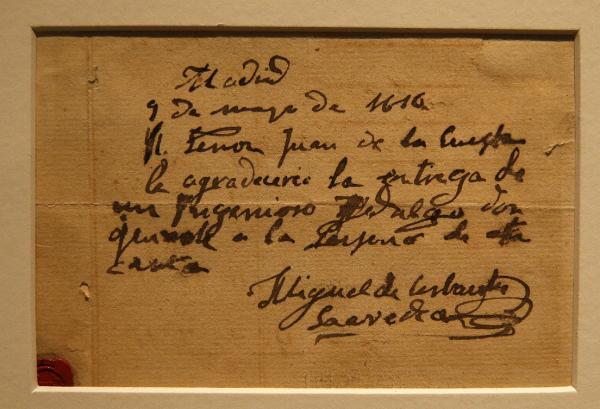 Madrid
9 de mayo de 1616
Sr. Senor Juan de la Cuesta
la agradecere la entrega de
un Yngenioso Hidalgo don
quixote a la Persona de esta
carta
Miguel de Cerbantes
Saavedra